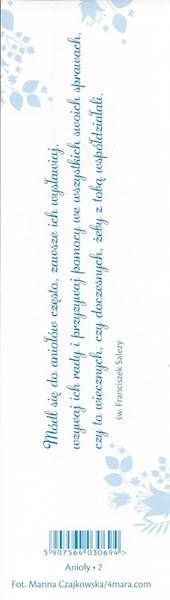 Módl się do aniołów często, zawsze ich wysławiaj,
wzywaj ich rady i przyzywaj pomocy we wszystkich swoich sprawach,
czy to wiecznych, czy doczesnych, żeby z tobą współdziałali.
św. Franciszek Salezy
5 907564 030694 >
Anioły • 2
Fot. Marina Czajkowska/4mara.com